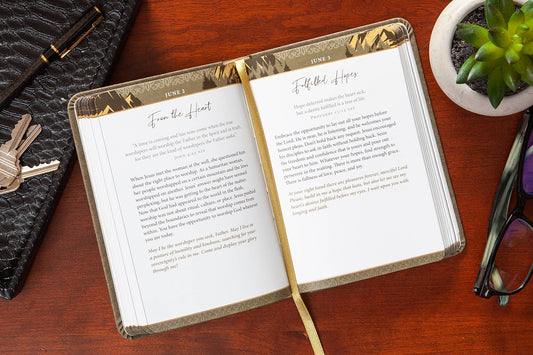 JUNE 2
From the Heart
"A time is coming and has now come when the true
worshipers will worship the Father in the Spirit and in truth,
for they are the kind of worshipers the Father seeks."
JOHN 4:23 NIV
When Jesus met the woman at the well, she questioned him
about the right place to worship. As a Samaritan woman,
her people worshipped on a certain mountain and the Jews
worshipped on another. Jesus' answer might have seemed
perplexing, but he was getting to the heart of the matter.
Now that God had appeared to the world in the flesh,
worship was not about ritual, culture, or place. Jesus pushed
beyond the boundaries to reveal that worship comes from
within. You have the opportunity to worship God wherever
you are today.
May I be the worshiper you seek, Father. May I live in
a posture of humility and kindness, searching for your
sovereignty's rule in me. Come and display your glory
through me!
JUNE 3
Fulfilled Hopes
Hope deferred makes the heart sick,
but a desire fulfilled is a tree of life.
PROVERBS 13:12
Embrace the opportunity to lay out all your hopes before
the Lord. He is near, he is listening, and he welcomes your
honest pleas. Don't hold back any request. Jesus encouraged
his disciples to ask in faith without holding back. Some
the freedom and confidence that is yours and pour out
your heart to him. Whatever your hopes, find strength to
persevere in the waiting. There is more than enough grace.
There is fullness of love, peace, and joy.
At your right hand there are pleasures forever, merciful Lord
Please, build in me a hope that lasts, but also let me see my
heart's desires fulfilled before my eyes. I wait upon you with
longing and faith.